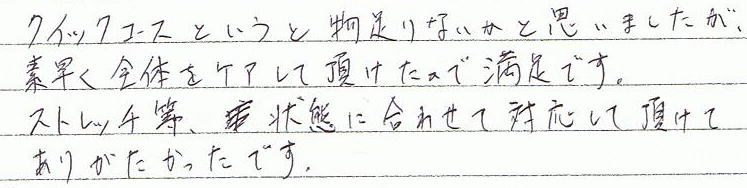 クイックコースというと物足りないかと思いましたが、
素早く全体をケアして頂けたので満足です。
ストレッチ等、状態に合わせて対応して頂けて
ありがたかったです。